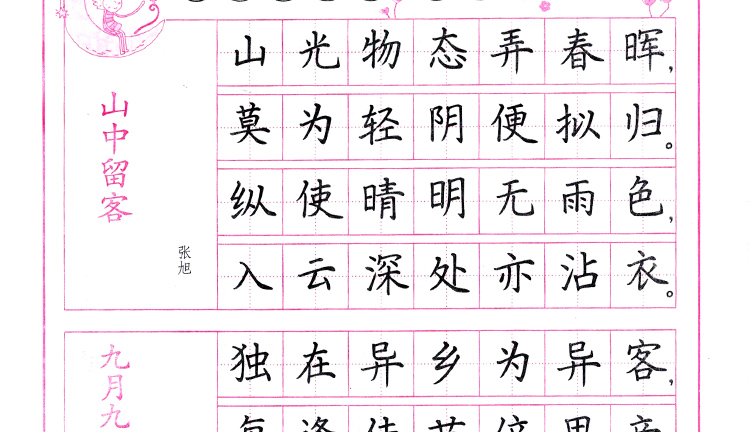 山中留客
张旭
山光物态弄春晖，
莫为轻阴便拟归。
纵使晴明无雨色，
入云深处亦沾衣。
九月九
独在异乡为异客，